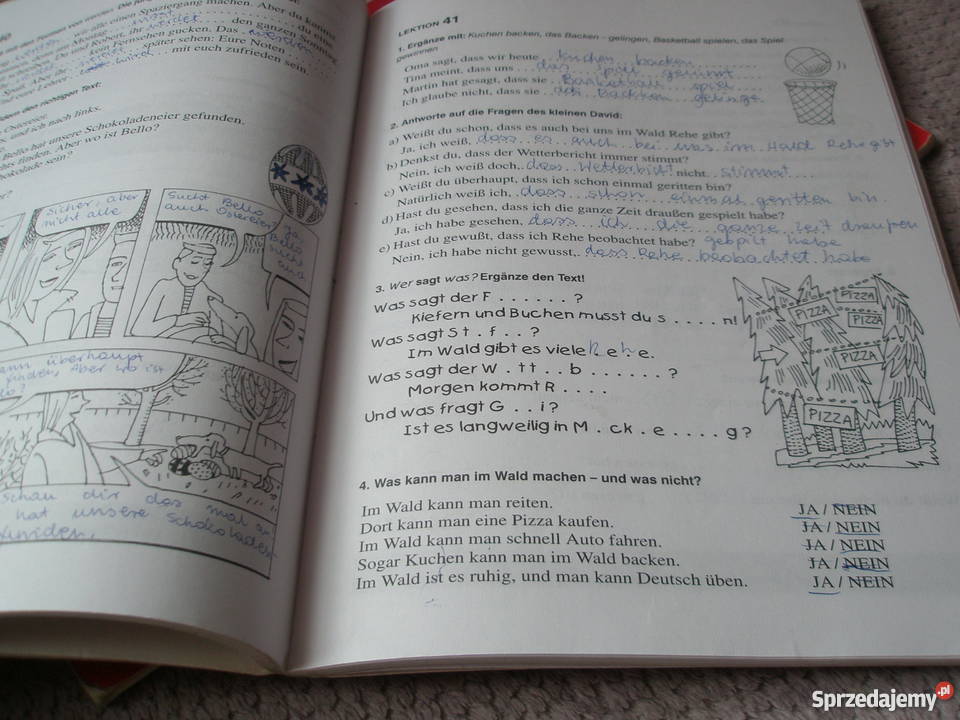 wir alle einen Spaziergang machen. Aber du kannst
du eine
den ganzen Sonntag
kein Fernsehen gucken. Das
später sehen: Eure Noten
mit euch zufrieden sein.
den richtigen Text:
und ich nach links.
Bello hat unsere Schokoladeneier gefunden.
finden. Aber wo ist Bello?
sein?
Sicher, aber
nicht alle
Sucht Bello
auch Ostereier?
Ja,
Bello
sucht
uns
überhaupt
finden. Aber wo ist
Schau dir das mal an
hat unsere Schokoladen
LEKTION 41
1. Ergänze mit: Kuchen backen, das Backen – gelingen, Basketball spielen, das Spiel
gewinnen
Oma sagt, dass wir heute kuchen backen
Tina meint, dass uns das spil gewinnt
Martin hat gesagt, dass sie Basketball spiel
Ich glaube nicht, dass sie das Backen gelinge
2. Antworte auf die Fragen des kleinen David:
a) Weißt du schon, dass es auch bei uns im Wald Rehe gibt?
Ja, ich weiß, dass es auch bei uns im Wald Rehe gibt
b) Denkst du, dass der Wetterbericht immer stimmt?
Nein, ich weiß doch, dass nicht stimmt
c) Weißt du überhaupt, dass ich schon einmal geritten bin?
Natürlich weiß ich, dass schon einmal geritten bin
d) Hast du gesehen, dass ich die ganze Zeit draußen gespielt habe?
Ja, ich habe gesehen, dass ich die ganze zeit draußen
gespilt habe
e) Hast du gewußt, dass ich Rehe beobachtet habe?
Nein, ich habe nicht gewusst, dass Rehe beobachtet habe
3. Wer sagt was? Ergänze den Text!
Was sagt der F . . . . . . ?
Kiefern und Buchen musst du s . . . . . n!
Was sagt St . f . . ?
Im Wald gibt es viele R e h e.
Was sagt der W . tt . . b . . . . . . ?
Morgen kommt R . . . .
Und was fragt G . . i?
Ist es langweilig in M . ck . e . . . . g?
PIZZA
PIZZA
PIZZA
PIZZA
PIZZA
4. Was kann man im Wald machen – und was nicht?
Im Wald kann man reiten. JA / NEIN
Dort kann man eine Pizza kaufen. JA / NEIN
Im Wald kann man schnell Auto fahren. JA / NEIN
Sogar Kuchen kann man im Wald backen. JA / NEIN
Im Wald ist es ruhig, und man kann Deutsch üben. JA / NEIN
Sprzedajemy.pl